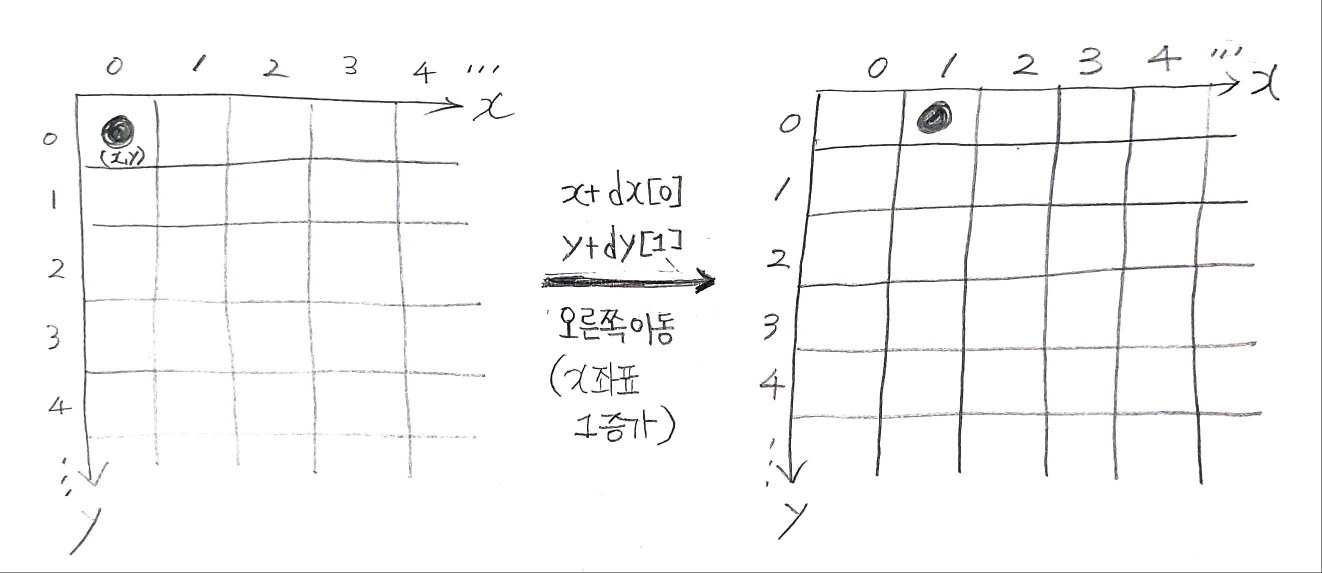 0 1 2 3 4 ...
x
0
(x,y)
1
2
3
4
...
y
x+dx[0]
y+dy[1]
오른쪽이동
(x좌표
1증가)
0 1 2 3 4 ...
x
0
1
2
3
4
...
y